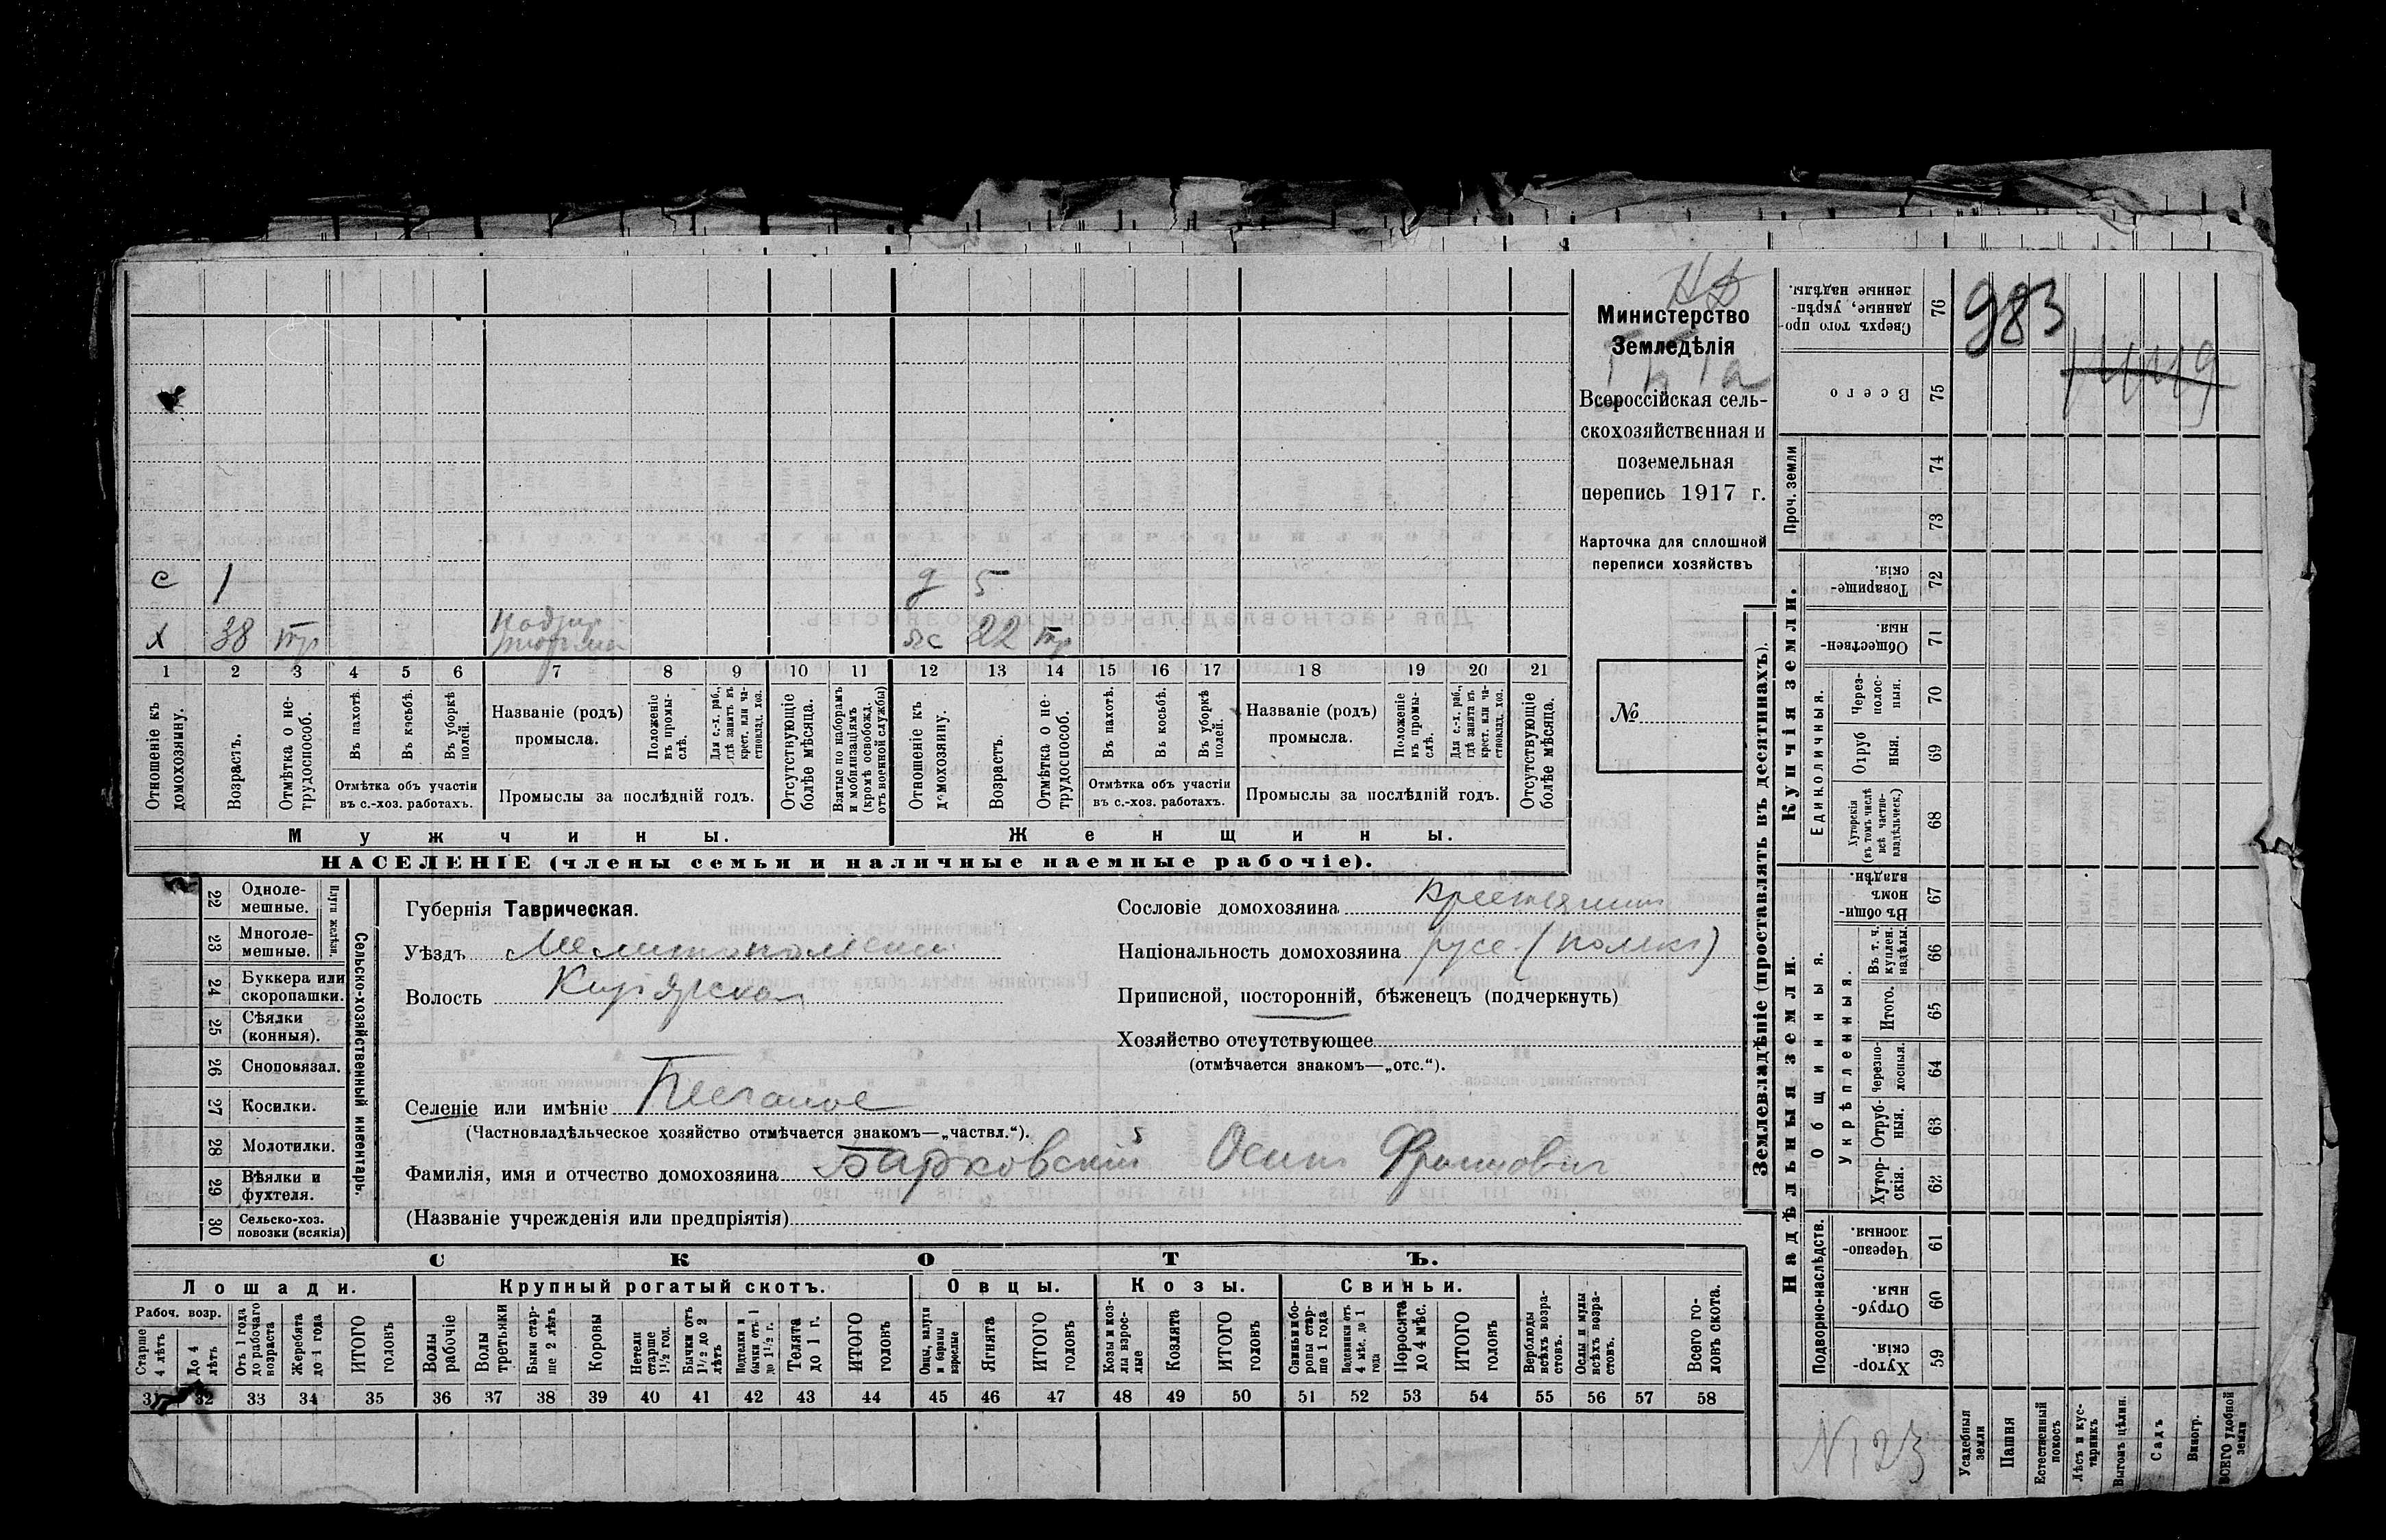 Министерство
Земледѣлія
Всероссійская сель-
скохозяйственная и
поземельная
перепись 1917 г.
Карточка для сплошной
переписи хозяйствъ
№
с 1 д 5
х 38 тр Надзир. тюрьмы жс 22 тр
1 2 3 4 5 6 7 8 9 10 11 12 13 14 15 16 17 18 19 20 21
Отношеніе къ домохозяину.
Возрастъ.
Отмѣтка о не-трудоспособ.
Въ пахотѣ.
Въ косьбѣ.
Въ уборкѣ полей.
Отмѣтка объ участіи въ с.-хоз. работахъ.
Названіе (родъ) промысла.
Положеніе въ промы-слѣ.
Для с.-х. раб., гдѣ занятъ въ крест. или ча-стновлад. хоз.
Промыслы за послѣдній годъ.
Отсутствующіе болѣе мѣсяца.
Взятые по наборамъ и мобилизаціямъ (кромѣ освобожд. отъ военной службы)
Отношеніе къ домохозяину.
Возрастъ.
Отмѣтка о не-трудоспособ.
Въ пахотѣ.
Въ косьбѣ.
Въ уборкѣ полей.
Отмѣтка объ участіи въ с.-хоз. работахъ.
Названіе (родъ) промысла.
Положеніе въ промы-слѣ.
Для с.-х. раб., гдѣ занята въ крест. или ча-стновлад. хоз.
Промыслы за послѣдній годъ.
Отсутствующіе болѣе мѣсяца.
Мужчины. Женщины.
НАСЕЛЕНІЕ (члены семьи и наличные наемные рабочіе).
22 Одноле-мешные.
23 Многоле-мешные.
Плуги желѣзн.
24 Буккера или скоропашки.
25 Сѣялки (конныя).
26 Сноповязал.
27 Косилки.
28 Молотилки.
29 Вѣялки и фухтеля.
30 Сельско-хоз. повозки (всякія)
Сельско-хозяйственный инвентарь.
Губернія Таврическая.
Уѣздъ Мелитопольскій
Волость
Селеніе или имѣніе Песчаное
(Частновладѣльческое хозяйство отмѣчается знакомъ—„частвл.“).
Фамилія, имя и отчество домохозяина Барковскій Осипъ
(Названіе учрежденія или предпріятія)
Сословіе домохозяина Крестьянинъ
Національность домохозяина русс. (полякъ)
Приписной, посторонній, бѣженецъ (подчеркнуть)
Хозяйство отсутствующее
(отмѣчается знакомъ—„отс.“).
СКОТЪ.
Лошади. Крупный рогатый скотъ. Овцы. Козы. Свиньи.
Рабоч. возр.
Старше 4 лѣтъ
До 4 лѣтъ
Отъ 1 года до рабочаго возраста
Жеребята до 1 года
ИТОГО головъ
Волы рабочіе
Волы третьяки
Быки стар-ше 2 лѣтъ
Коровы
Нетели старше 1½ год.
Бычки отъ 1½ до 2 лѣтъ
Подтелки и бычки отъ 1 до 1½ г.
Телята до 1 г.
ИТОГО головъ
Овцы, валухи и бараны взрослые
Ягнята
ИТОГО головъ
Козы и коз-лы взрос-лые
Козлята
ИТОГО головъ
Свиньи и бо-ровы стар-ше 1 года
Подсвинки отъ 4 мѣс. до 1 года
Поросята до 4 мѣс.
ИТОГО головъ
Верблюды всѣхъ возра-стовъ.
Ослы и мулы всѣхъ возра-стовъ.
Всего го-ловъ скота.
31 32 33 34 35 36 37 38 39 40 41 42 43 44 45 46 47 48 49 50 51 52 53 54 55 56 57 58
Землевладѣніе (проставлять въ десятинахъ).
Купчія земли.
Надѣльныя земли.
76 Сверхъ того про-данные, укрѣп-ленные надѣлы.
75 Всего
Проч. земли
74
73
72 Товарище-скія.
71 Обществен-ныя.
Единоличныя.
70 Через-полос-ныя.
69 Отруб ныя.
68 Хуторскія (въ томъ числѣ всѣ частно-владѣльческ.)
67 Въ общи-номъ владѣн.
Общинныя.
Укрѣпленныя.
66 Въ т. ч. куплен. надѣлы.
65 Итого.
64 Черезпо-лосныя.
63 Отруб-ныя.
62 Хутор-скія.
Подворно-наслѣдств.
61 Черезпо-лосныя.
60 Отруб-ныя.
59 Хутор-скія.
983
N 123
Усадебныя земли
Пашня
Естественный покосъ
Лѣсъ и кус-тарникъ
Выгонъ цѣлин.
Садъ
Виногр.
ВСЕГО удобной земли